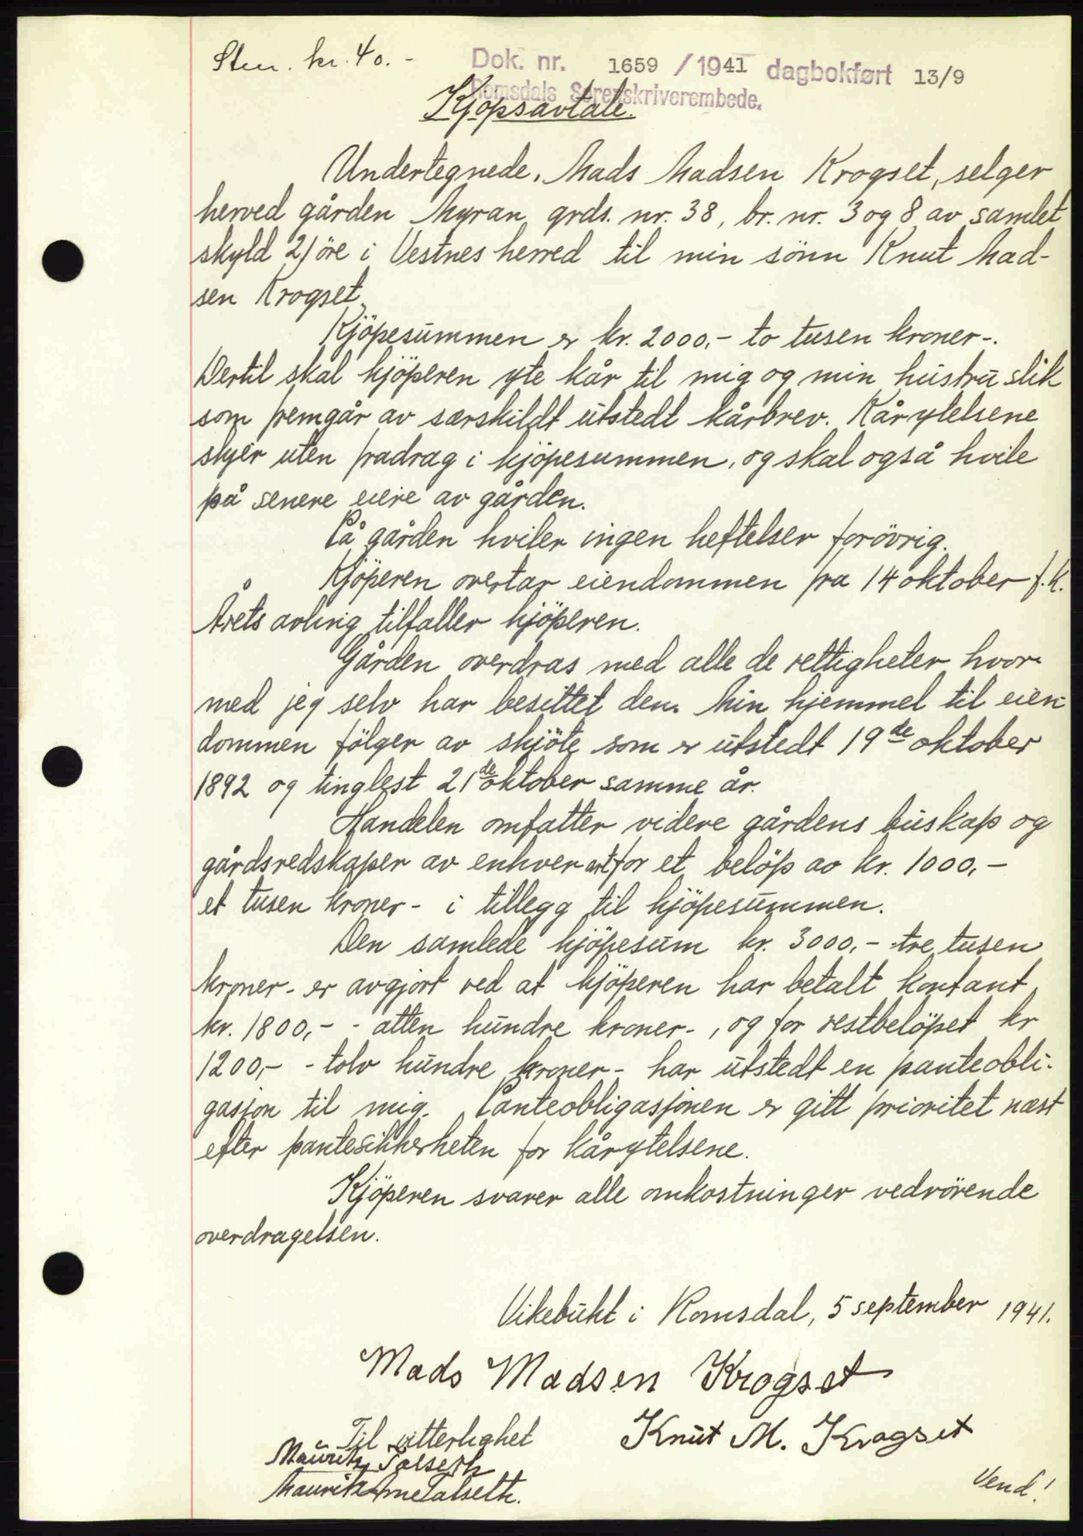 Stm. kr. 40.-
Dok. nr. 1659 / 1941 dagbokført 13/9
Romsdals Sorenskriverembede.
Kjöpsavtale.
Undertegnede, Mads Madsen Krogset, selger
herved gården Myran, grds. nr. 38, br. nr. 3 og 8 av samlet
skyld 21 öre i Vestnes herred til min sönn Knut Mad-
sen Krogset.
Kjöpesummen er kr. 2000,- to tusen kroner-.
Dertil skal kjöperen yte kår til mig og min hustru slik
som fremgår av særskildt utstedt kårbrev. Kårytelsene
skjer uten fradrag i kjöpesummen, og skal også hvile
på senere eiere av gården.
På gården hviler ingen heftelser forövrig.
Kjöperen overtar eiendommen fra 14 oktober f.k.
Årets avling tilfaller kjöperen.
Gården overdras med alle de rettigheter hvor-
med jeg selv har besittet den. Min hjemmel til eien-
dommen fölger av skjöte som er utstedt 19de oktober
1892 og tinglest 21de oktober samme år.
Handelen omfatter videre gårdens buskap og
gårdsredskaper av enhver art for et belöp av kr. 1000,-
et tusen kroner- i tillegg til kjöpesummen.
Den samlede kjöpesum kr. 3000,- tre tusen
kroner- er avgjort ved at kjöperen har betalt kontant
kr. 1800,- - atten hundre kroner-, og for restbelöpet kr
1200,- - tolv hundre kroner- har utstedt en panteobli-
gasjon til mig. Panteobligasjonen er gitt prioritet næst
efter pantesikkerheten for kårytelsene.
Kjöperen svarer alle omkostninger vedrörende
overdragelsen.
Vikebukt i Romsdal, 5 september 1941.
Mads Madsen Krogset
Knut M. Krogset
Til vitterlighet
Mauritz Talseth
Vend!